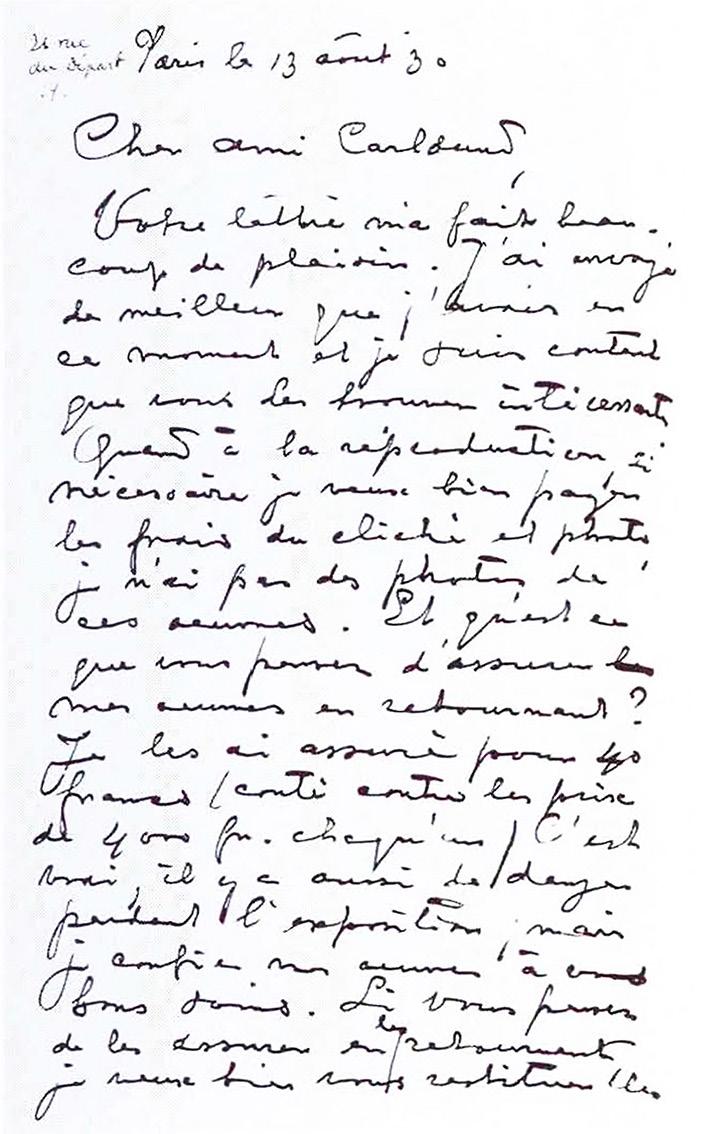 26 rue
du Départ
Paris le 13 août 30
Cher ami Carlsund,
Votre lèttre m'a fait beau-
coup de plaisir. J'ai envoyé
le meilleur que j'avais en
ce moment et je suis content
que vous les trouver intéressants
Quand à la réproduction, si
nécessaire je veux bien payer
les frais du cliché et photo,
je n'ai pas des photos de
ces oeuvres. Et qu'est ce
que vous penser d'assurer
mes oeuvres en retournant?
Je les ai assuré pour 40
francs (conté contre les prix
de 4000 fr. chaqu'un) C'est
vrai, il y a aussi de danger
pendant l'exposition, mais
je confie mes oeuvres à vos
bons soins. Si vous penser
de les assurer en les retournant
je veux bien vous restituer les